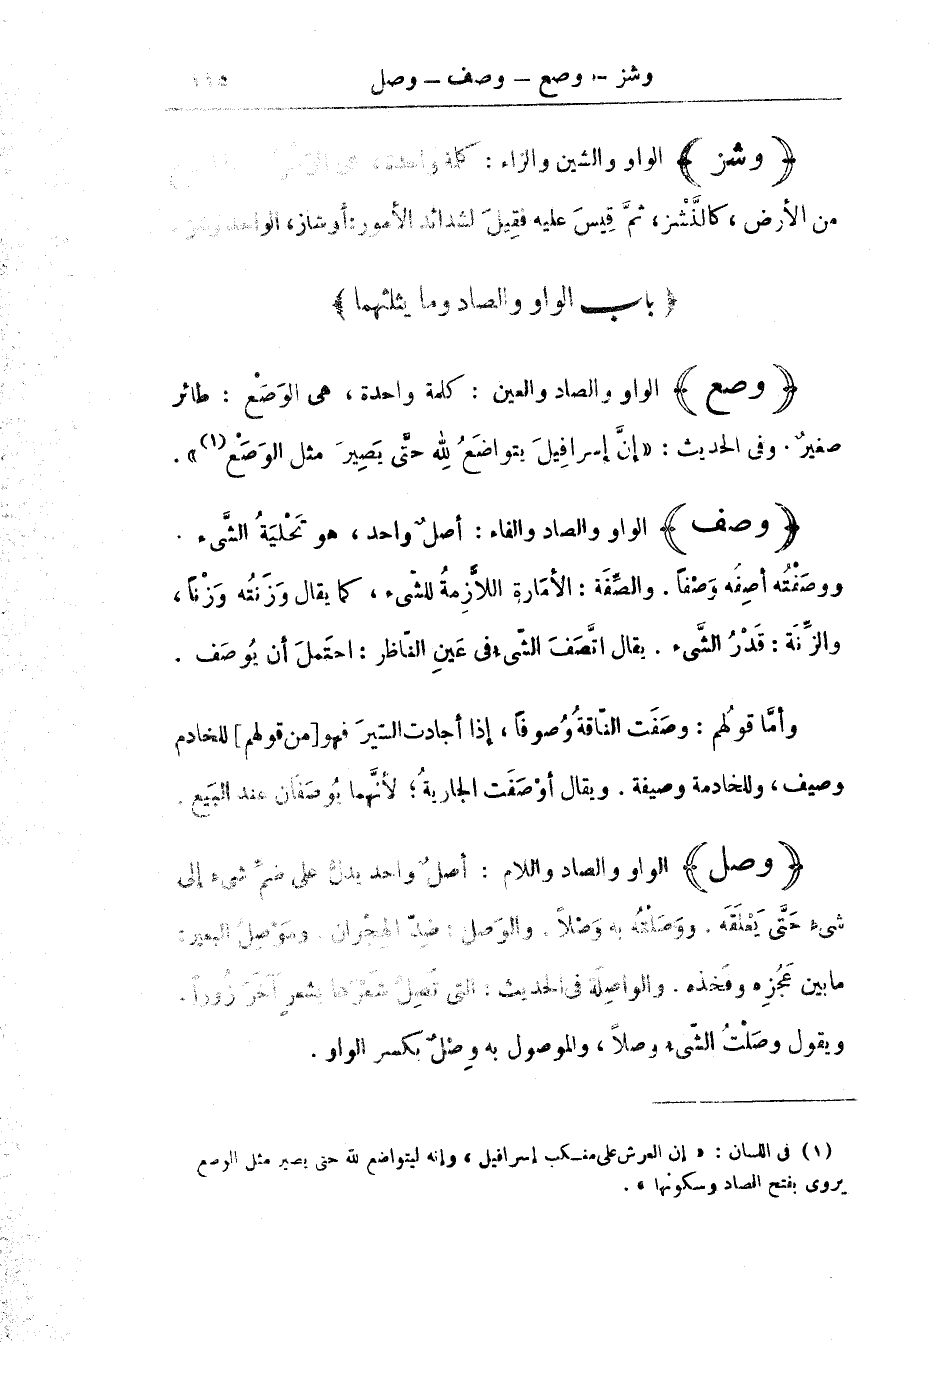 وشز - وصع - وصف - وصل ١١٥
﴿ وشز ﴾ الواو والشين والزاء : كلمة واحدة، هى
من الأرض ، كالنَّشْز، ثمَّ قِيسَ عليه فقِيلَ لشدائد الأمور: أوشاز، الواحد وشز.
﴿ باب الواو والصاد وما يثلثهما ﴾
﴿ وصع ﴾ الواو والصاد والعين : كلمة واحدة ، هى الوَصَعْ : طائر
صغيرٌ . وفى الحديث : «إنَّ إسرافِيلَ يتواضَعُ لِلّه حتَّى يَصِيرَ مثل الوَصَعْ(١)» .
﴿ وصف ﴾ الواو والصاد والفاء : أصلٌ واحد ، هو تَحْلِيَةُ الشَّىء .
ووصَفْتُه أصِفُه وَصْفاً . والصِّفَة : الأمَارة اللاَّزِمةُ للشّىء ، كما يقال وَزَنتُه وَزْناً ،
والزِّنَة : قَدْرُ الشَّىء . يقال اتَّصَفَ الشّىء فى عَينِ النّاظر : احتَملَ أن يُوصَف .
وأمَّا قولُهم : وصَفَت النّاقةُ وُصوفاً ، إذا أجادت السّيرَ فهو [من قولهم] للخادم
وصيف ، وللخادمة وصيفة . ويقال أوْصَفَت الجاريةُ ؛ لأنَّهما يُوصَفَان عند البَيع .
﴿ وصل ﴾ الواو والصاد واللام : أصلٌ واحد يدلُّ على ضمِّ شىء إلى
شىء حَتَّى يَعْلَقَه . ووَصَلْتُه به وَصْلاً . والوَصل : ضِدّ الهِجْران . ومَوْصِلُ البعير :
ما بين عَجُزِه وفَخذه . والواصِلَة فى الحديث : التى تَصِلُ شَعْرَها بشَعرٍ آخَرَ زُوراً .
ويقول وصَلْتُ الشّىء وصلاً ، والموصول به وِصْلٌ بكسر الواو .
(١) فى اللسان : « إن العرش على منسكب إسرافيل ، وإنه ليتواضع لله حتى يصير مثل الوصع
يروى بفتح الصاد وسكونها » .